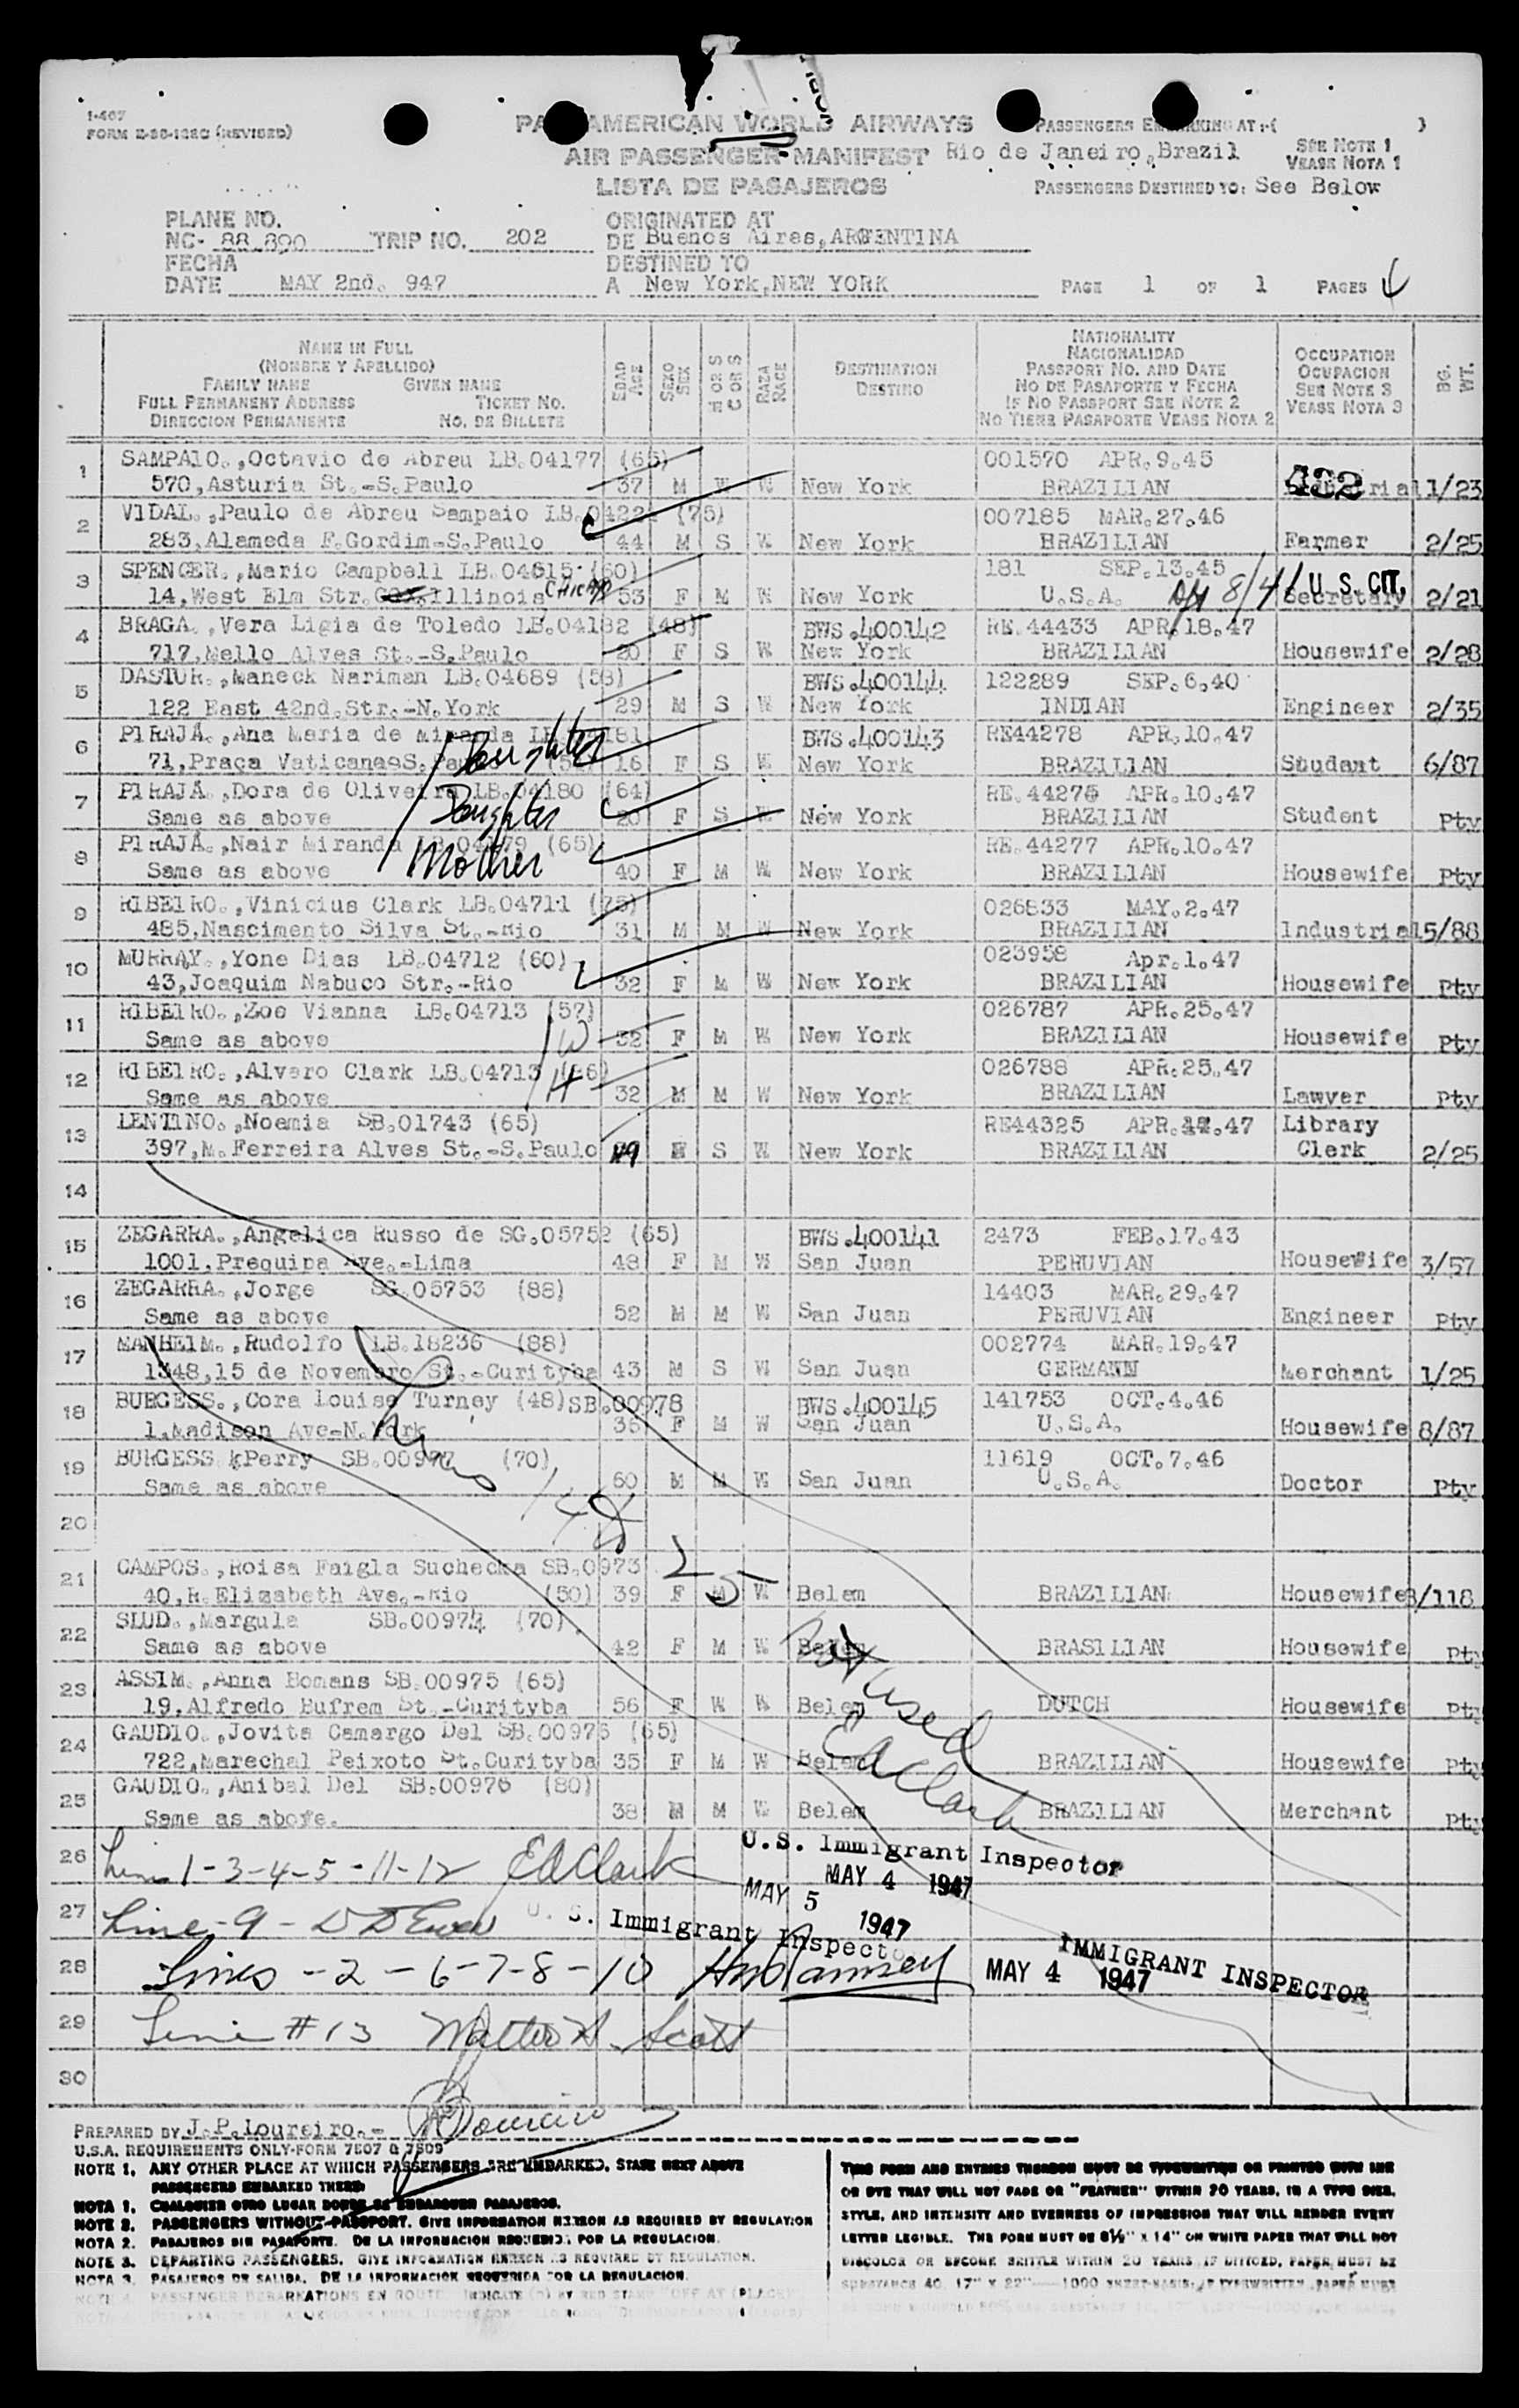 I-467
FORM E-38-102C (REVISED)
PAN AMERICAN WORLD AIRWAYS
AIR PASSENGER MANIFEST
LISTA DE PASAJEROS
PASSENGERS EMBARKING AT:-( )
Rio de Janeiro,Brazil
SEE NOTE 1
VEASE NOTA 1
PASSENGERS DESTINED TO: See Below
PLANE NO.
NC- 88 890 TRIP NO. 202
ORIGINATED AT
DE Buenos Aires,ARGENTINA
FECHA
DATE MAY 2nd. 947
DESTINED TO
A New York,NEW YORK
PAGE 1 OF 1 PAGES
NAME IN FULL
(NOMBRE Y APELLIDO)
FAMILY NAME GIVEN NAME
FULL PERMANENT ADDRESS TICKET NO.
DIRECCION PERMANENTE NO. DE BILLETE
EDAD AGE
SEXO SEX
M OR S
C OR S
RAZA RACE
DESTINATION
DESTINO
NATIONALITY
NACIONALIDAD
PASSPORT NO. AND DATE
NO DE PASAPORTE Y FECHA
IF NO PASSPORT SEE NOTE 2
NO TIENE PASAPORTE VEASE NOTA 2
OCCUPATION
OCUPACION
SEE NOTE 3
VEASE NOTA 3
BG. WT.
1 SAMPAIO.,Octavio de Abreu LB.04177 (65) 001570 APR.9.45
570,Asturia St.-S.Paulo 37 M W W New York BRAZILIAN 432 rial 1/23
2 VIDAL.,Paulo de Abreu Sampaio LB.0422 (75) 007185 MAR.27.46
283,Alameda F.Gordim-S.Paulo 44 M S W New York BRAZILIAN Farmer 2/25
3 SPENCER.,Mario Campbell LB.04615 (60) 181 SEP.13.45
14,West Elm Str. Illinois CHICAGO 53 F M W New York U.S.A. 8/41 U. S. CIT. Secretary 2/21
4 BRAGA.,Vera Ligia de Toledo LB.04182 (48) BWS.400142 RE.44433 APR.18.47
717,Mello Alves St.-S.Paulo 20 F S W New York BRAZILIAN Housewife 2/28
5 DASTUR.,Maneck Nariman LB.04689 (58) BWS.400144 122289 SEP.6.40
122 East 42nd.Str.-N.York 29 M S W New York INDIAN Engineer 2/35
6 PIRAJÁ.,Ana Maria de Miranda 181 BWS.400143 RE44278 APR.10.47
71,Praça Vaticana-S.Pau Daughter 16 F S W New York BRAZILIAN Student 6/87
7 PIRAJÁ.,Dora de Oliveira LB.04180 (64) RE.44276 APR.10.47
Same as above Daughter 20 F S W New York BRAZILIAN Student Pty
8 PIRAJÁ.,Nair Miranda LB.04179 (65) RE.44277 APR.10.47
Same as above Mother 40 F M W New York BRAZILIAN Housewife Pty
9 RIBEIRO.,Vinicius Clark LB.04711 (75) 026833 MAY.2.47
485,Nascimento Silva St.-Rio 31 M M W New York BRAZILIAN Industrial 5/88
10 MURRAY.,Yone Dias LB.04712 (60) 023958 Apr.1.47
43,Joaquim Nabuco Str.-Rio 32 F M W New York BRAZILIAN Housewife Pty
11 RIBEIRO.,Zoe Vianna LB.04713 (57) 026787 APR.25.47
Same as above W 32 F M W New York BRAZILIAN Housewife Pty
12 RIBEIRO.,Alvaro Clark LB.04713 (86) 026788 APR.25.47
Same as above H 32 M M W New York BRAZILIAN Lawyer Pty
13 LENTINO.,Noemia SB.01743 (65) RE44325 APR. .47 Library
397,M.Ferreira Alves St.-S.Paulo 49 F S W New York BRAZILIAN Clerk 2/25
14
15 ZEGARRA.,Angelica Russo de SG.05752 (65) BWS.400141 2473 FEB.17.43
1001,Prequipa Ave.-Lima 48 F M W San Juan PERUVIAN Housewife 3/57
16 ZEGARRA.,Jorge SG.05753 (88) 14403 MAR.29.47
Same as above 52 M M W San Juan PERUVIAN Engineer Pty
17 MANHEIM.,Rudolfo LB.18236 (88) 002774 MAR.19.47
1348,15 de Novembro St.-Curityba 43 M S W San Juan GERMANN Merchant 1/25
18 BURGESS.,Cora Louise Turney (48) SB.00978 BWS.400145 141753 OCT.4.46
1,Madison Ave-N.York 35 F M W San Juan U.S.A. Housewife 8/87
19 BURGESS Perry SB.00977 (70) 11619 OCT.7.46
Same as above 60 M M W San Juan U.S.A. Doctor Pty
20
21 CAMPOS.,Roisa Faigla Suchecka SB.0973
40,R.Elizabeth Ave.-Rio (50) 39 F M W Belem BRAZILIAN Housewife 8/118
22 SLUD.,Margula SB.00974 (70)
Same as above 42 F M W Belem BRASILIAN Housewife Pty
23 ASSIM.,Anna Bomans SB.00975 (65)
19,Alfredo Bufrem St.-Curityba 56 F W W Belem DUTCH Housewife Pty
24 GAUDIO.,Jovita Camargo Del SB.00976 (65)
722,Marechal Peixoto St.Curityba 35 F M W Belem BRAZILIAN Housewife Pty
25 GAUDIO.,Anibal Del SB.00976 (80)
Same as above. 38 M M W Belem BRAZILIAN Merchant Pty
Lines 14
25
Not used
EAClark
U.S. Immigrant Inspector
26 Lines 1-3-4-5-11-12 EAClark
MAY 4 1947
MAY 5 1947
27 Line-9-
U. S. Immigrant Inspector
28 Lines -2-6-7-8-10 Ramsey
MAY 4 1947
IMMIGRANT INSPECTOR
29 Line #13 Walter Scott
30
PREPARED BY J.P.Loureiro.- Loureiro
U.S.A. REQUIREMENTS ONLY-FORM 7507 & 7509
NOTE 1. ANY OTHER PLACE AT WHICH PASSENGERS ARE EMBARKED, STATE NEXT ABOVE
PASSENGERS EMBARKED THERE.
NOTA 1. CUALQUIER OTRO LUGAR DONDE SE EMBARQUEN PASAJEROS.
NOTE 2. PASSENGERS WITHOUT PASSPORT. GIVE INFORMATION HEREON AS REQUIRED BY REGULATION
NOTA 2. PASAJEROS SIN PASAPORTE. DE LA INFORMACION REQUERIDA POR LA REGULACION.
NOTE 3. DEPARTING PASSENGERS. GIVE INFORMATION HEREON AS REQUIRED BY REGULATION.
NOTA 3. PASAJEROS DE SALIDA. DE LA INFORMACION REQUERIDA POR LA REGULACION.
PASSENGER DEBARKATIONS EN ROUTE INDICATE BY RED STAMP "OFF AT (PLACE)
THIS FORM AND ENTRIES THEREON MUST BE TYPEWRITTEN OR PRINTED WITH INK
OR DYE THAT WILL NOT FADE OR "FEATHER" WITHIN 20 YEARS, IN A TYPE SIZE,
STYLE, AND INTENSITY AND EVENNESS OF IMPRESSION THAT WILL RENDER EVERY
LETTER LEGIBLE. THE FORM MUST BE 8½" X 14" ON WHITE PAPER THAT WILL NOT
DISCOLOR OR BECOME BRITTLE WITHIN 20 YEARS. IF DITTOED, PAPER MUST BE
SUBSTANCE 40, 17" X 22"—1000 SHEET-BASIS; IF TYPEWRITTEN, PAPER MUST